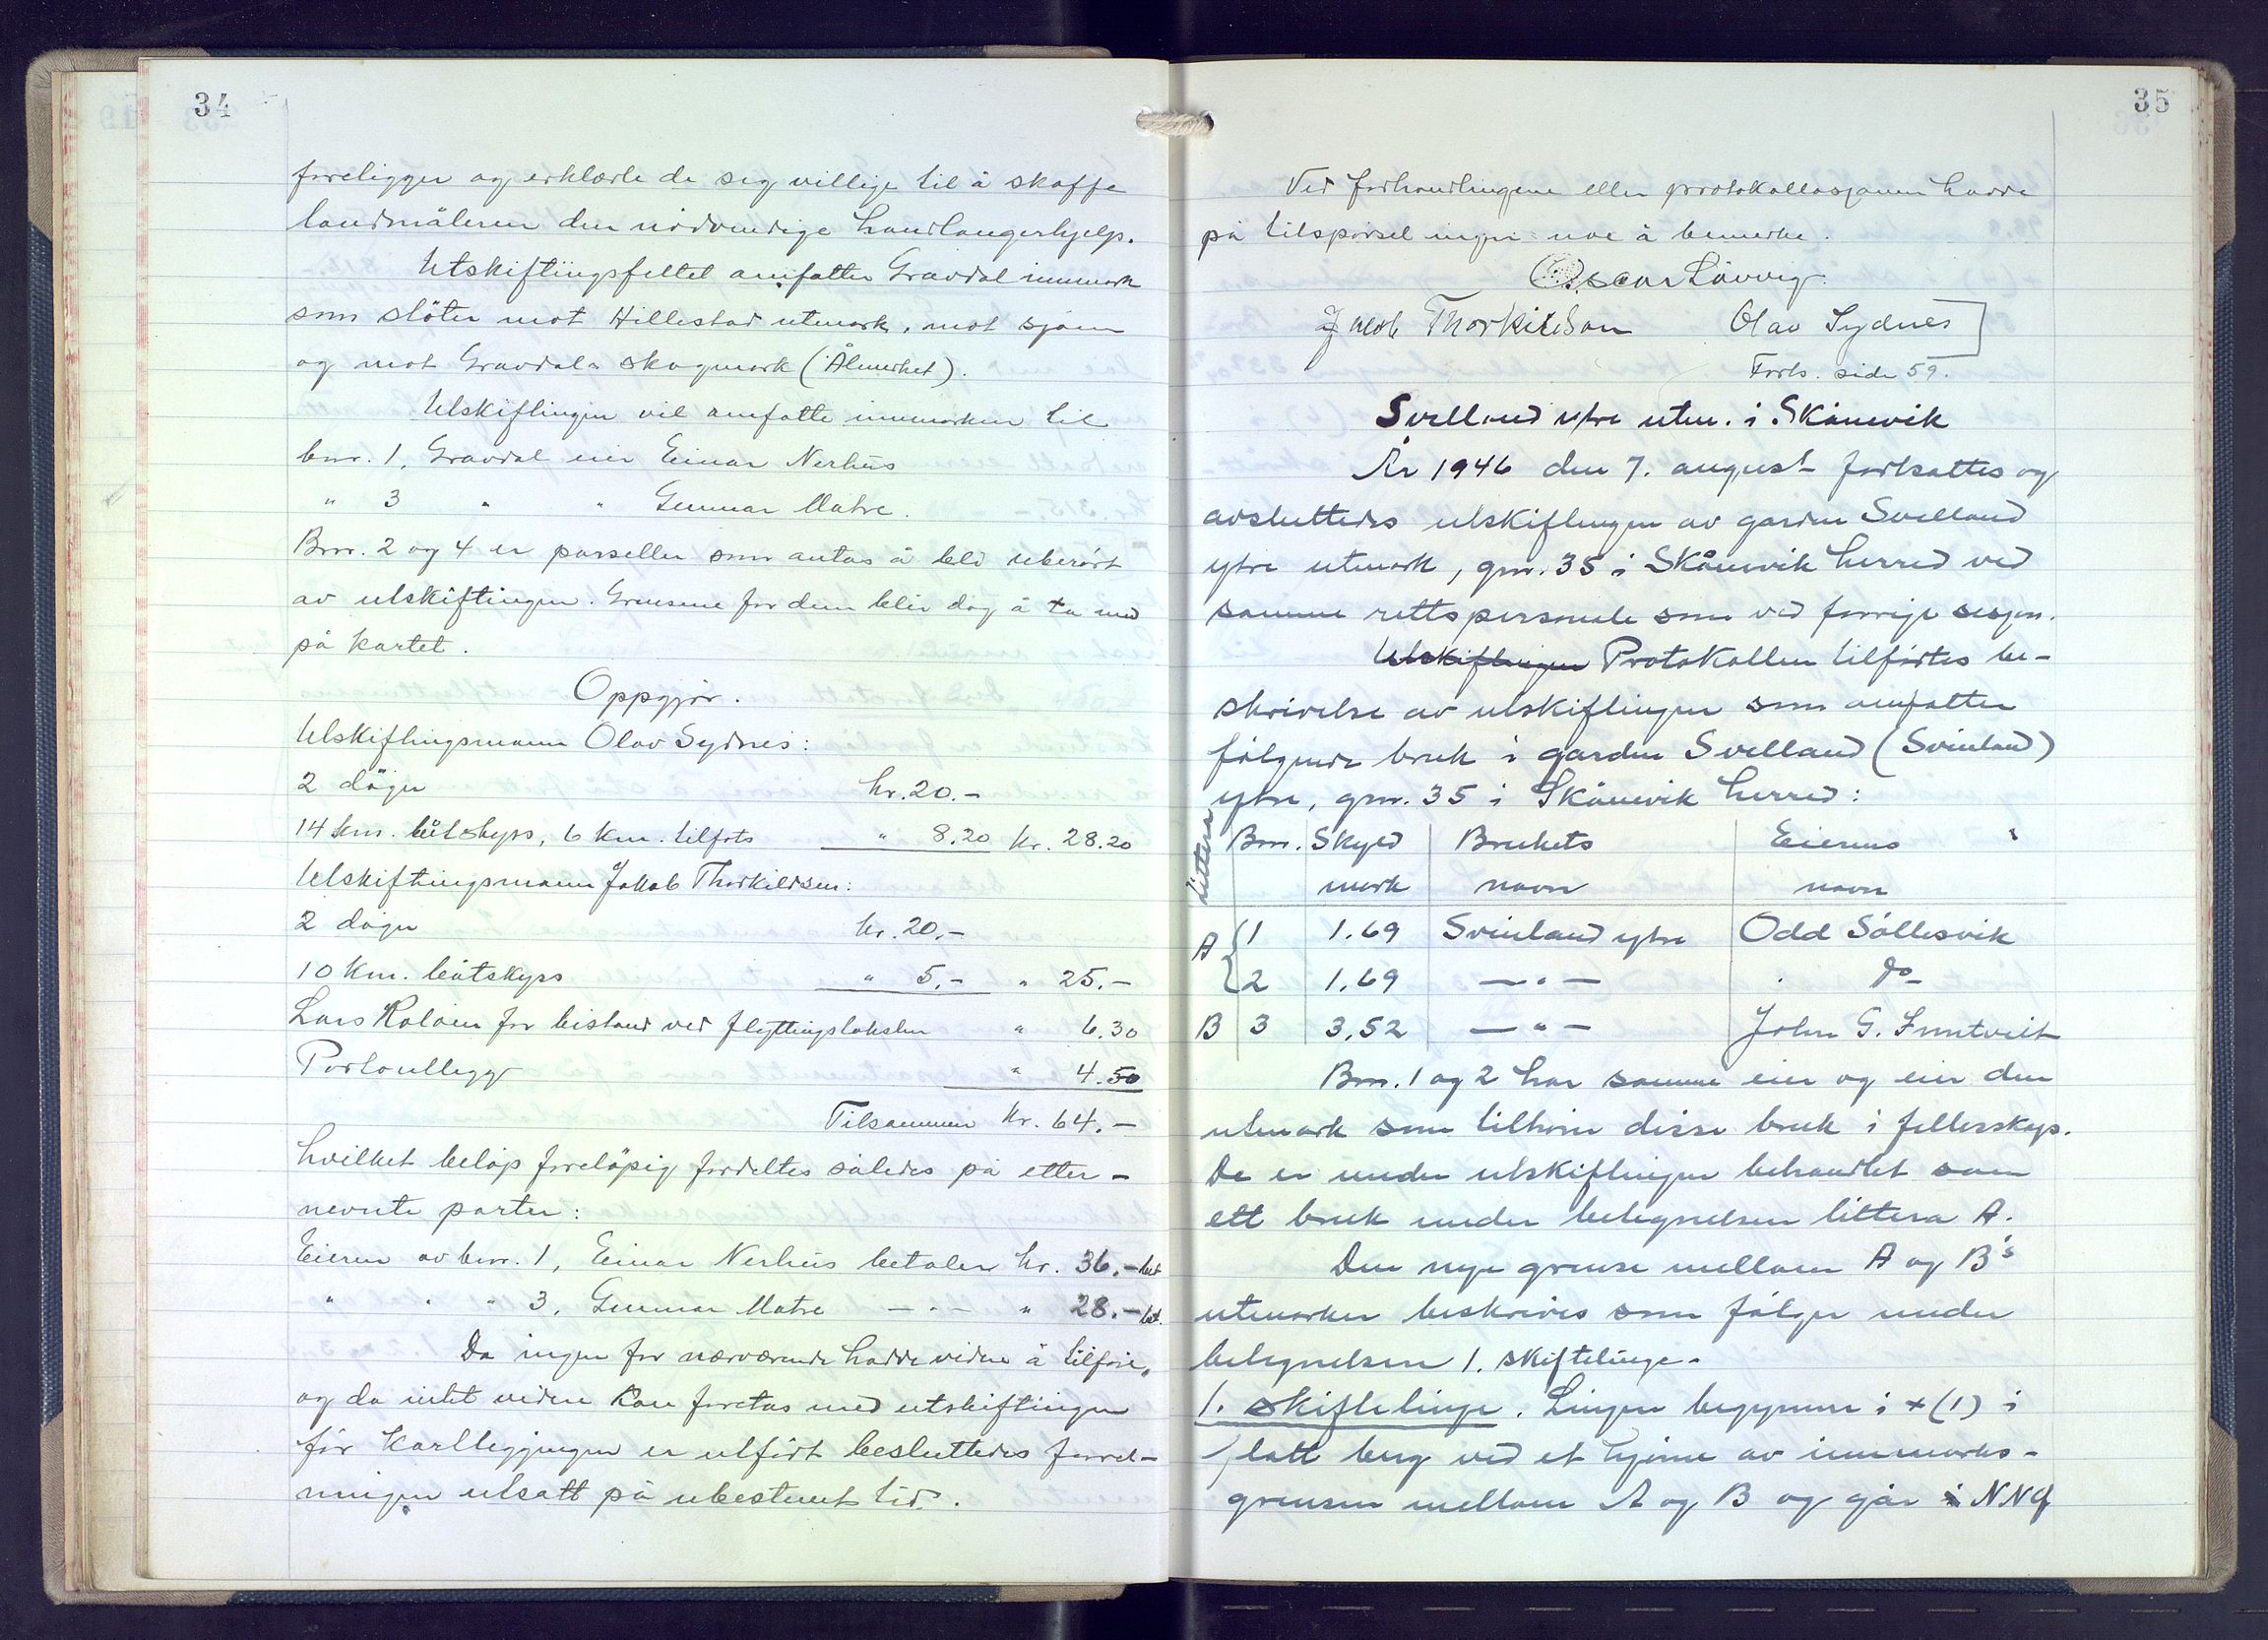 34
foreligger og erklærte de seg villige til å skaffe
landmåleren den nödvendige handlangerhjelp.
Utskiftingsfeltet omfatter Gravdal innmark
som stöter mot Hillestad utmark, mot sjöen
og mot Gravdals skogmark (Ålmerket).
Utskiftingen vil omfatte innmarken til
bnr. 1, Gravdal eier Einar Nerhus
" 3 " " Gunnar Matre.
Bnr. 2 og 4 er parseller som antas å bli uberört
av utskiftingen. Grensene for dem blir dog å ta med
på kartet.
Oppgjör.
Utskiftingsmann Olav Sydnes:
2 döger kr. 20.-
14 km. båtskyss, 6 km. tilfots " 8.20 kr. 28.20
Utskiftingsmann Jakob Thorkildsen:
2 döger kr. 20.-
10 km. båtskyss " 5.- " 25.-
Lars for bistand ved flyttingstaksten " 6.30
Portoutlegg " 4.50
Tilsammen kr. 64.-
hvilket belöp forelöpig fordeltes således på etter-
nevnte parter:
Eieren av bnr. 1, Einar Nerhus betaler kr. 36.- bet
" " " 3, Gunnar Matre — " — " 28.- bet.
Da ingen for nærværende hadde videre å tilföie,
og da intet videre kan foretas med utskiftingen
för kartleggingen er utfört besluttedes forret-
ningen utsatt på ubestemt tid.
35
Ved forhandlingene eller protokollasjonen hadde
på tilspörsel ingen noe å bemerke.
Oscar Lövvig.
Jacob Thorkildsen Olav Sydnes
Forts. side 59.
Svelland ytre utm. i Skånevik
År 1946 den 7. august fortsattes og
avsluttedes utskiftingen av garden Svelland
ytre utmark, gnr. 35 i Skånevik herred ved
samme rettspersonale som ved forrige sesjon.
Utskiftingen Protokollen tilförtes be-
skrivelse av utskiftingen som omfatter
fölgende bruk i garden Svelland (Svinland)
ytre, gnr. 35 i Skånevik herred:
Littera Bnr. Skyld Brukets Eierens
mark navn navn
A { 1 1.69 Svinland ytre Odd Söllesvik
2 1.69 — " — do
B 3 3.52 — " — John G. Tuntveit
Bnr. 1 og 2 har samme eier og eier den
utmark som tilhörer disse bruk i fellesskap.
De er under utskiftingen behandlet som
ett bruk under betegnelsen littera A.
Den nye grense mellom A og B's
utmarker beskrives som fölger under
betegnelsen 1. skiftelinje.
1. skiftelinje. Linjen begynner i x (1) i
flatt berg ved et hjörne av innmarks-
grensen mellom A og B og går i NNO